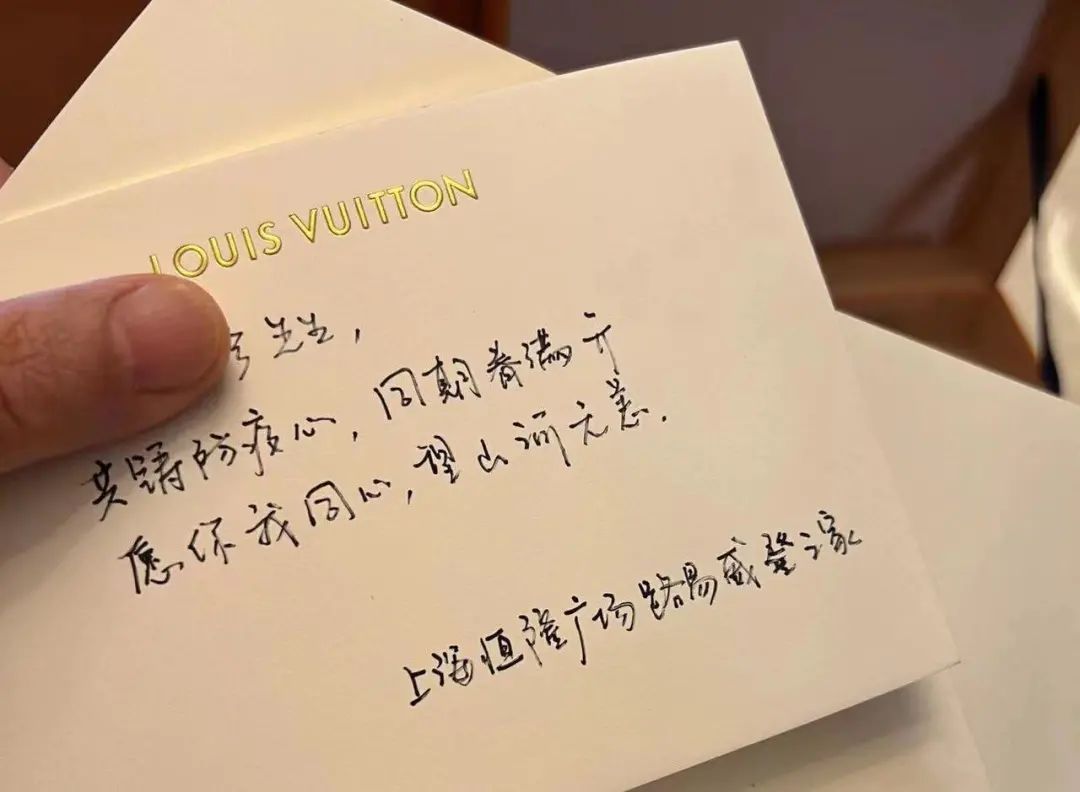 LOUIS VUITTON
先生，
共铸防疫心，同期春满开
愿你我同心，望山河无恙.
上海恒隆广场路易威登之家